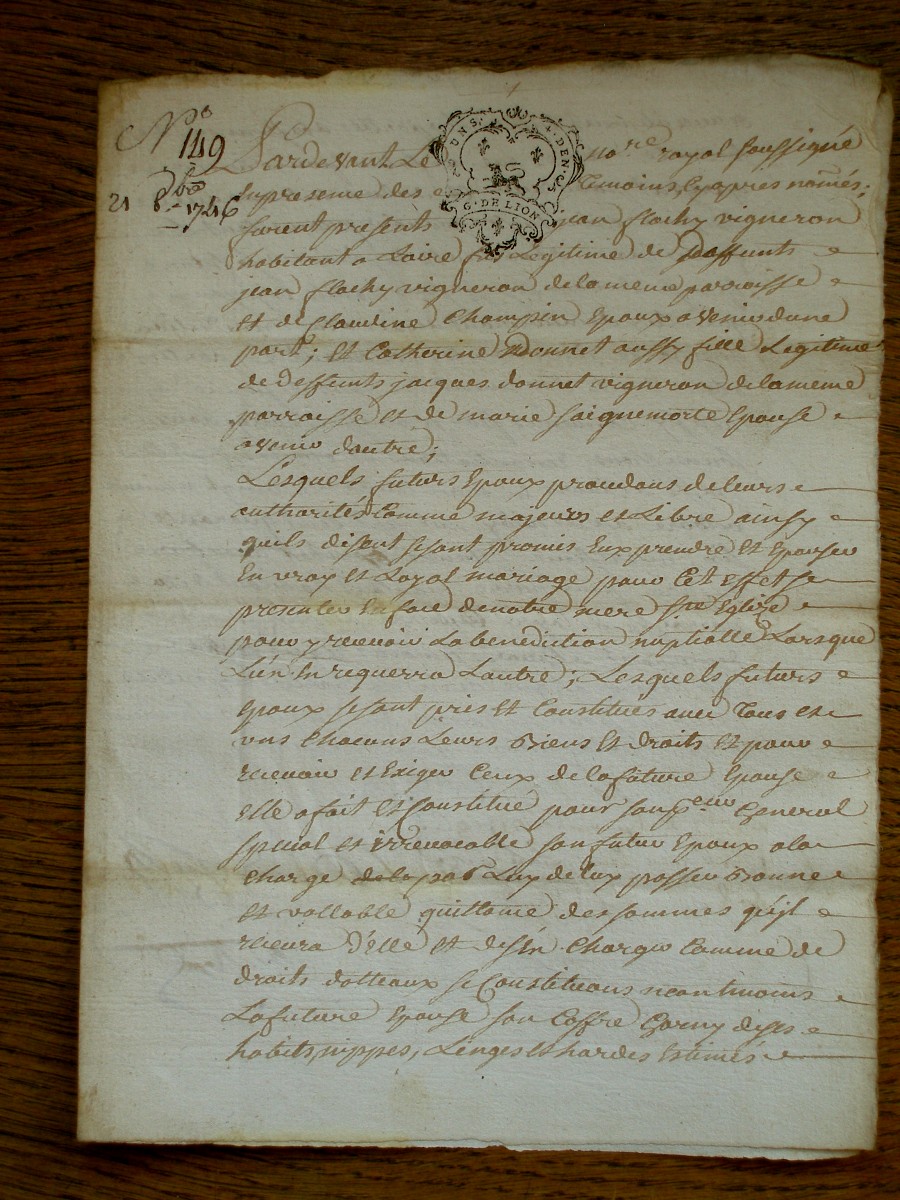 No 149
21 8bre 1746
UN S. 4. DEN. G. DE LION
Pardevant Le no.re royal soussigné
En presence des temoins Cy apres nommés;
furent presents jean flachy vigneron
habitant a Loire fils Legitime de deffunts
jean flachy vigneron de la meme parroisse
et de Claudine Champin Epoux a venir dune
part; et Catherine donnet aussy fille Legitime
de deffunts jacques donnet vigneron de la meme
parroisse et de marie saignemorte Epouse
a venir dautre;
Lesquels futurs Epoux procedans de leurs
authorités Comme majeurs et Libre ainsy
quils disent se sont promis Eux prendre et Epouser
En vray et Loyal mariage pour Cet effet se
presenter En face de notre mere ste Eglize
pour y recevoir La benediction nuptialle Lorsque
L'un En requerra Lautre; Lesquels futurs
Epoux se sont pris et Constitués avec tous et
uns chacuns Leurs Biens et droits et pour
recevoir et Exiger Ceux de la future Epouse
elle a fait et Constitué pour son p.eur General
special et irrevocable son futur Epoux a la
charge de par Luy passer Bonne
et vallable quittance des sommes qu'jl
recevra d'elle et de s'en charger Comme de
droits dotteaux se Constituant neantmoins
La future Epouse son Coffre Garny de ses
habits, nippes, Linges et hardes Estimés